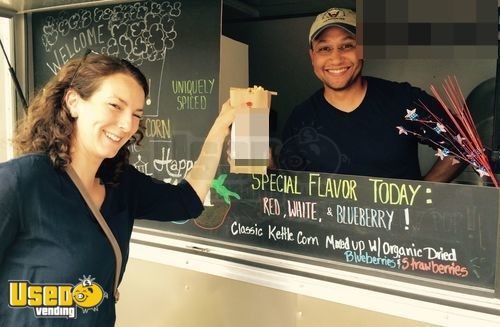 WELCOME
UNIQUELY
SPICED
CORN
Happ
SPECIAL FLAVOR TODAY:
RED, WHITE, & BLUEBERRY!
Classic Kettle Corn Mixed up w/ Organic Dried
Blueberries & Strawberries
Used
vending